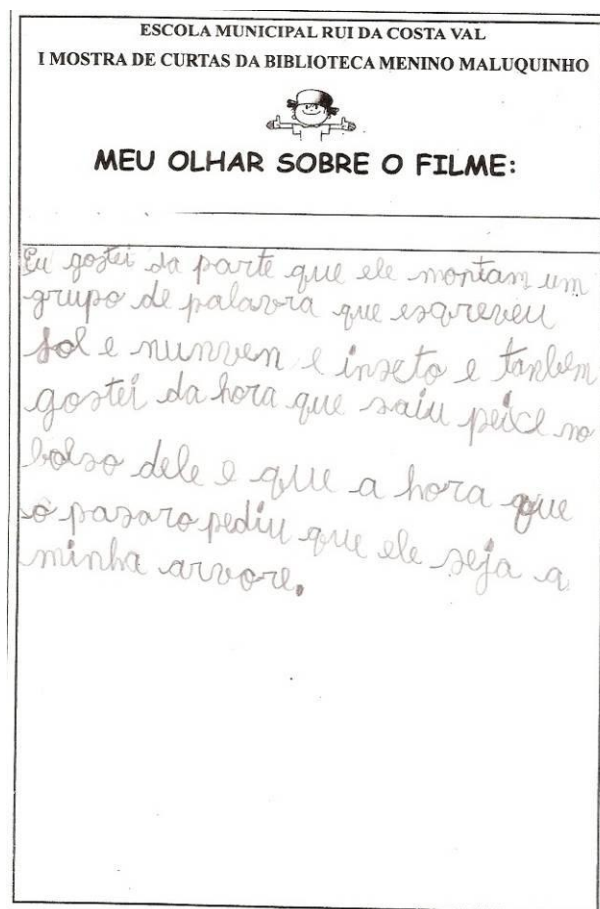 ESCOLA MUNICIPAL RUI DA COSTA VAL
I MOSTRA DE CURTAS DA BIBLIOTECA MENINO MALUQUINHO
MEU OLHAR SOBRE O FILME:
Eu gostei da parte que ele montam um
grupo de palavra que esqreveu
sol e nunven e inseto e tanbem
gostei da hora que saiu peixe no
bolso dele e que a hora que
o pasaro pediu que ele seja a
minha arvore.